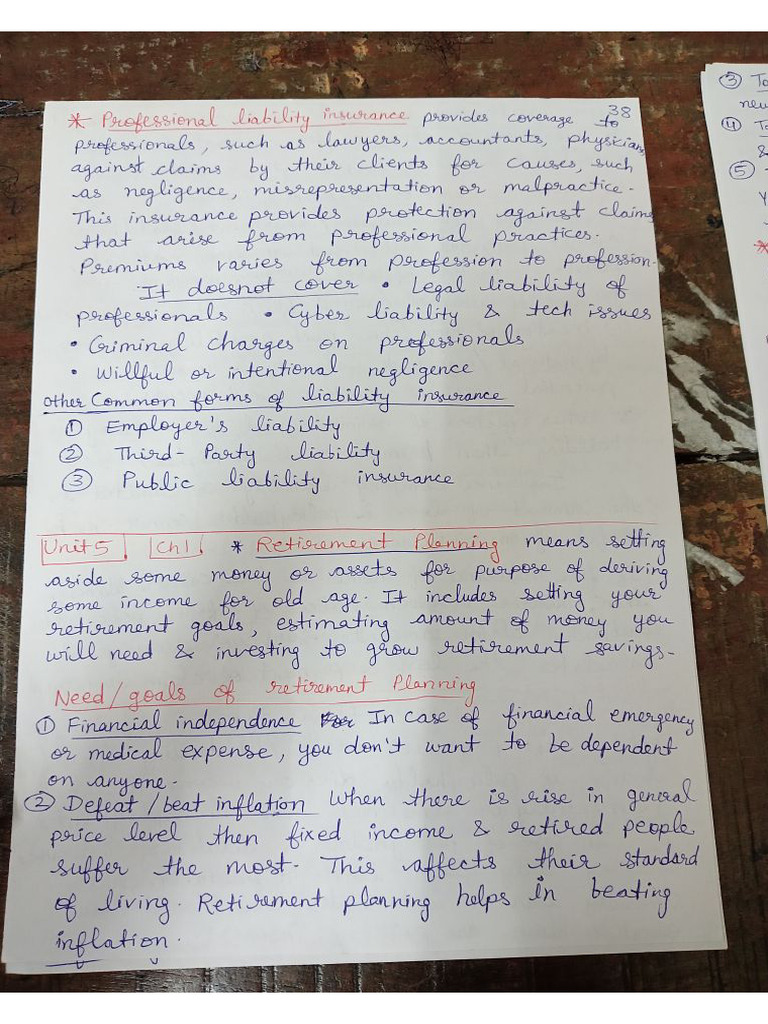 38
* Professional liability insurance provides coverage to
professionals, such as lawyers, accountants, physicians
against claims by their clients for causes, such
as negligence, misrepresentation or malpractice.
This insurance provides protection against claims
that arise from professional practices.
Premiums varies from profession to profession.
It doesnot cover • Legal liability of
professionals • Cyber liability & tech issues
• Criminal charges on professionals
• Willful or intentional negligence
Other Common forms of liability insurance
① Employer's liability
② Third-Party liability
③ Public liability insurance
Unit 5 Ch 1 * Retirement Planning means setting
aside some money or assets for purpose of deriving
some income for old age. It includes setting your
retirement goals, estimating amount of money you
will need & investing to grow retirement savings.
Need/goals of retirement Planning
① Financial independence In case of financial emergency
or medical expense, you don't want to be dependent
on anyone.
② Defeat/beat inflation When there is rise in general
price level then fixed income & retired people
suffer the most. This affects their standard
of living. Retirement planning helps in beating
inflation.
③ To
new
④ To
⑤